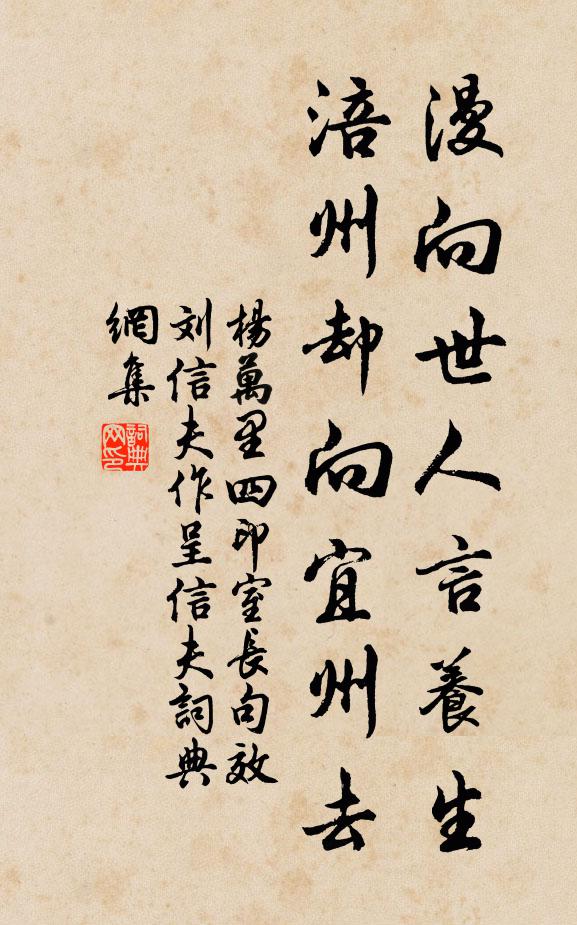 漫向世人言養生
涪州却向宜州去
楊萬里四印室長句效
刘信夫作呈信夫詞典
網集
詞典
网印